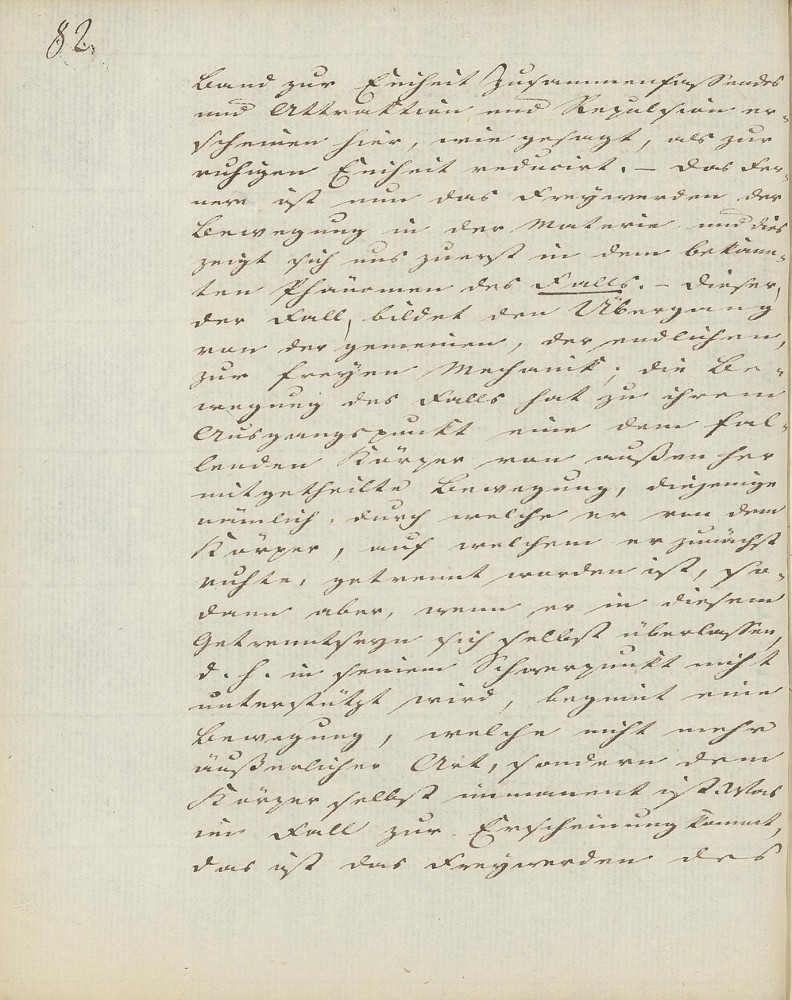 82.
Band zur Einheit Zusammenfassendes
und Attraktion und Repulsion er-
scheinen hier, wie gesagt, als zur
ruhigen Einheit reducirt. – Das Fer-
nere ist nun das Freywerden der
Bewegung in der Materie und dies
zeigt sich uns zuerst in dem bekann-
ten Phänomen des Falls. – Dieser,
der Fall, bildet den Übergang
von der gemeinen, der endlichen,
zur freyen Mechanik; die Be-
wegung des Falls hat zu ihrem
Ausgangspunkt eine dem fal-
lenden Körper von außen her
mitgetheilte Bewegung, diejenige
nämlich, durch welche er von dem
Körper, auf welchem er zunächst
ruhte, getrennt worden ist, so-
dann aber, wenn er in diesem
Getrenntseyn sich selbst überlassen,
d. h. in seinem Schwerpunkt nicht
unterstützt wird, beginnt eine
Bewegung, welche nicht mehr
äußerlicher Art, sondern dem
Körper selbst immanent ist. Was
im Fall zur Erscheinung kommt,
das ist das Freywerden des